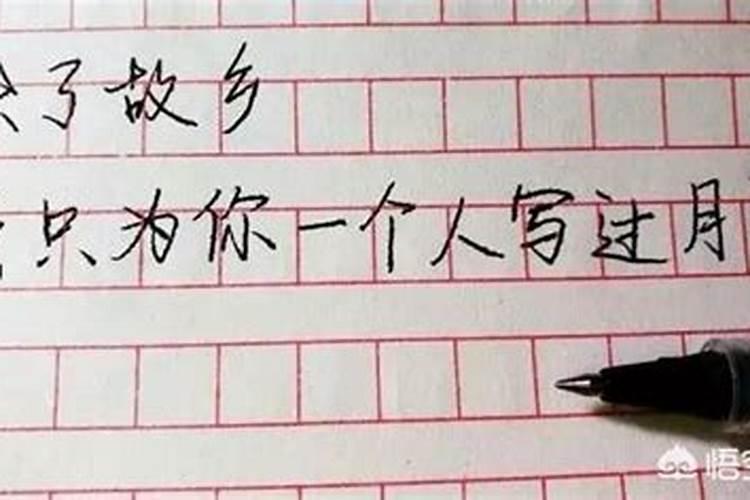 了故乡
只为你一个人写过月
悟